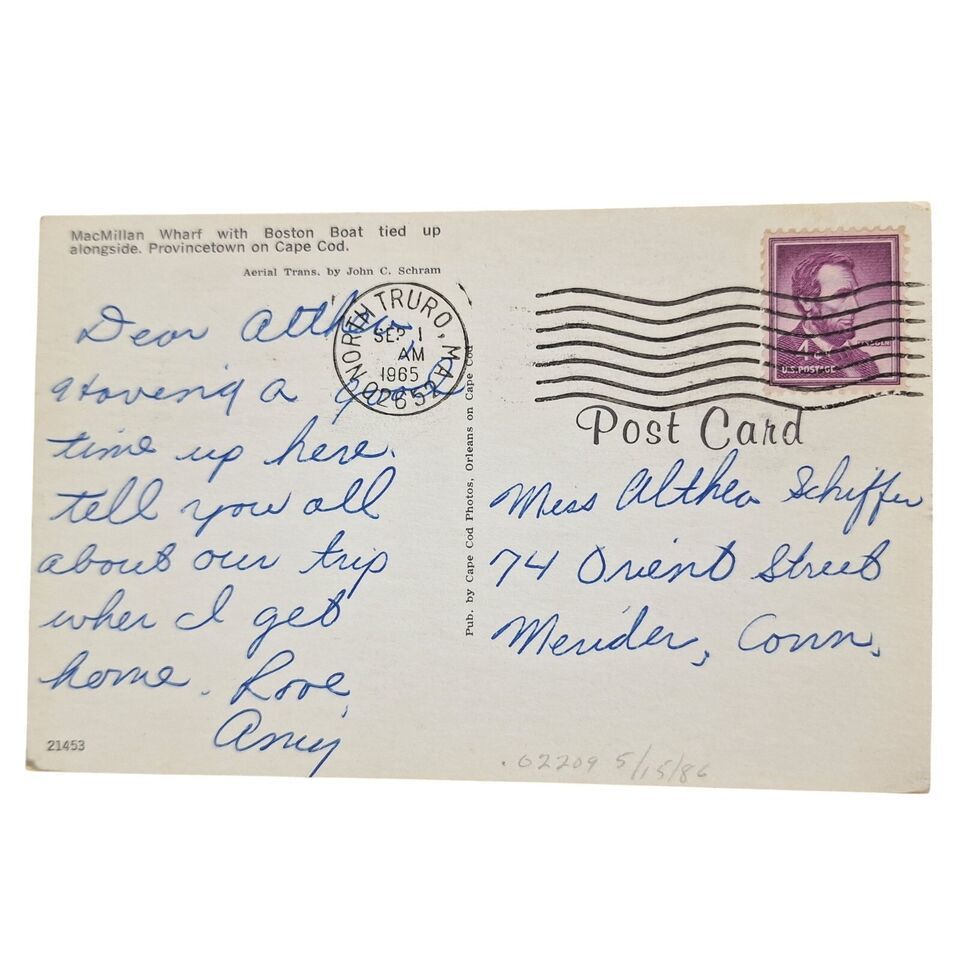 MacMillan Wharf with Boston Boat tied up
alongside. Provincetown on Cape Cod.
Aerial Trans. by John C. Schram
Dear Althea,
Having a good
time up here.
tell you all
about our trip
when I get
home. Love,
Amy
21453
Pub. by Cape Cod Photos, Orleans on Cape Cod
NORTH TRURO, MA
SEP 1
AM
1965
02652
LINCOLN
4¢
U.S. POSTAGE
Post Card
Miss Althea Schiffer
74 Orient Street
Meriden, Conn.
.02209 5/15/86